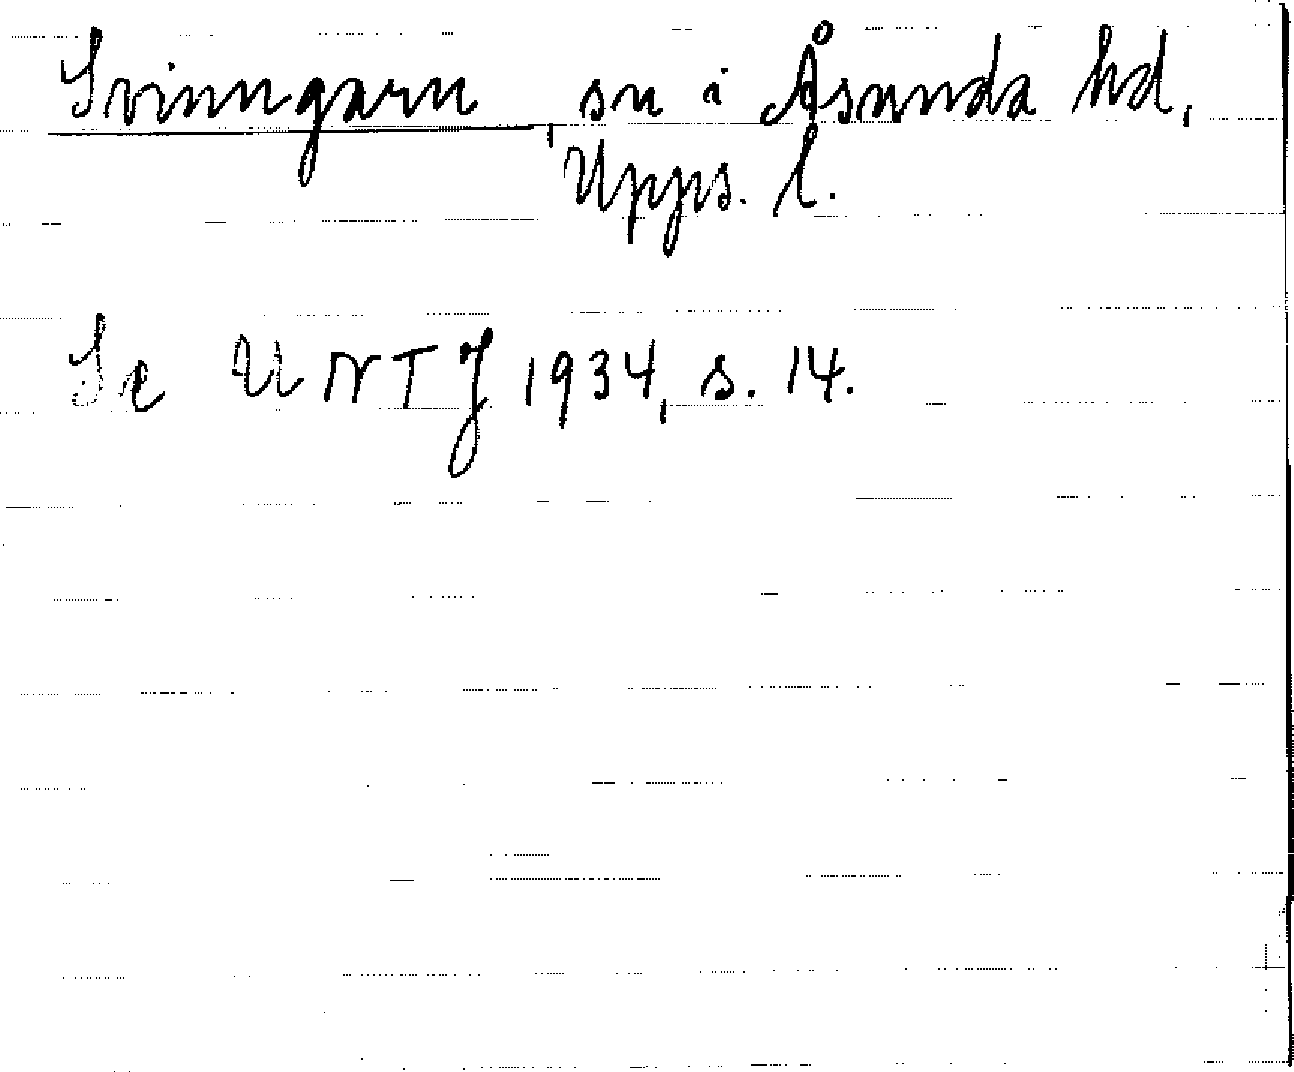 Svinngarn, sn i Åsunda hd,
Upps. l.
Se UNTJ 1934, s. 14.